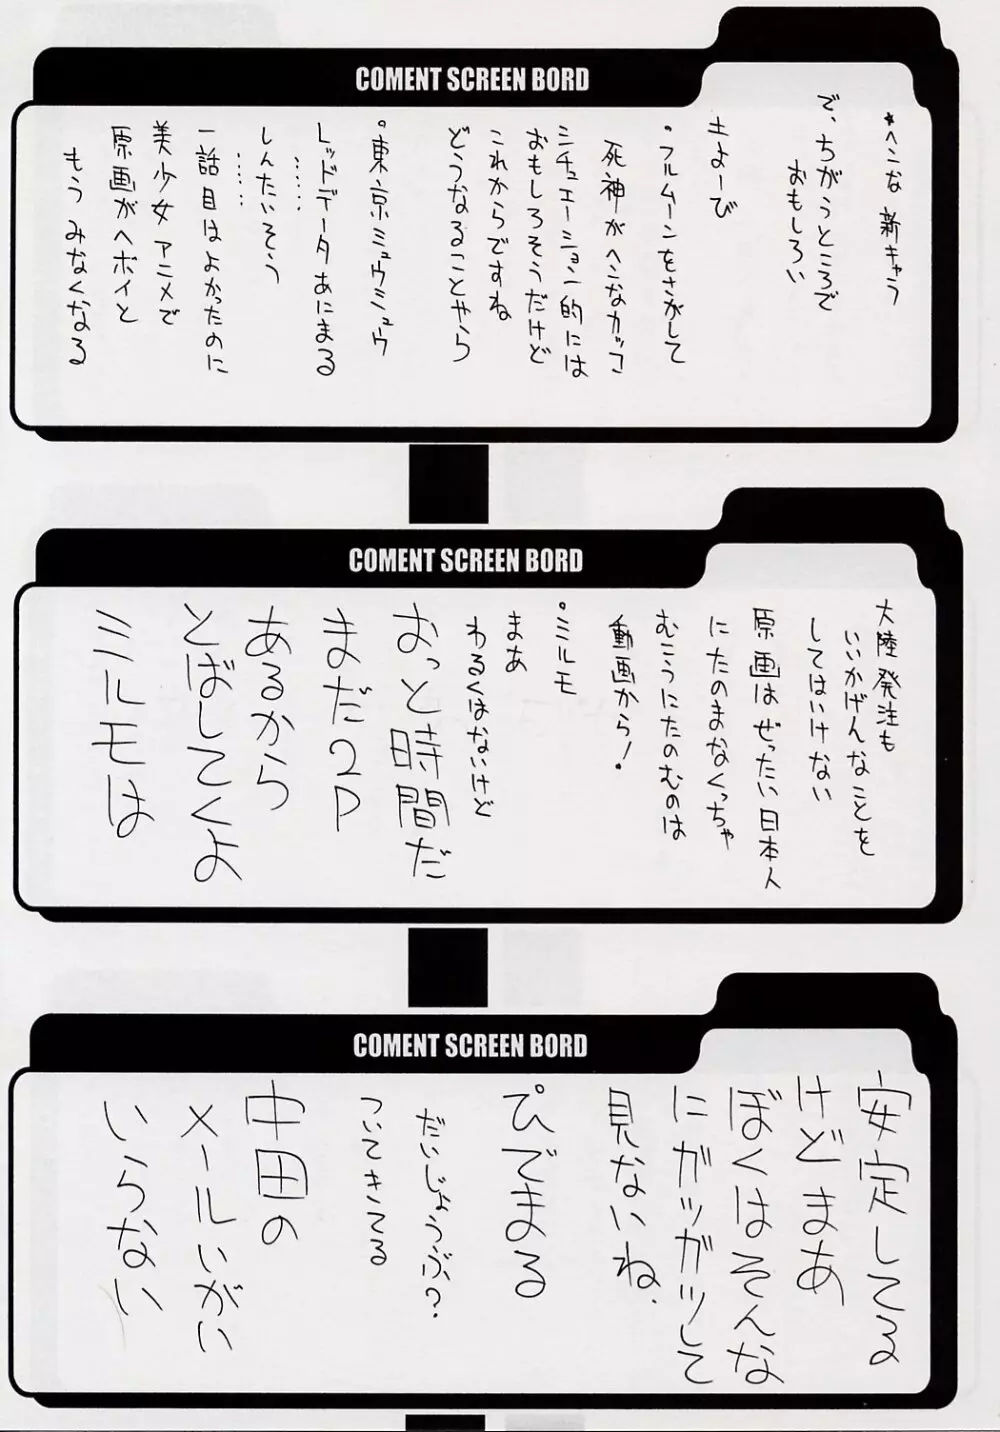 COMENT SCREEN BORD
*ヘンな新キャラ
で、ちがうところで
おもしろい
土よーび
・フルムーンをさがして
死神がヘンなカッコ
シチュエーション的には
おもしろそうだけど
これからですね
どうなることやら
。東京ミュウミュウ
レッドデータあにまる
……
しんたいそう
……
一話目はよかったのに
美少女アニメで
原画がヘボイと
もうみなくなる
COMENT SCREEN BORD
大陸発注も
いいかげんなことを
してはいけない
原画はぜったい日本人
にたのまなくっちゃ
むこうにたのむのは
動画から!
。ミルモ
まあ
わるくはないけど
おっと時間だ
まだ2P
あるから
とばしてくよ
ミルモは
COMENT SCREEN BORD
安定してる
けどまあ
ぼくはそんな
にガッガッして
見ないね.
ぴでまる
だいじょうぶ?
ついてきてる
中田の
メールいがい
いらない